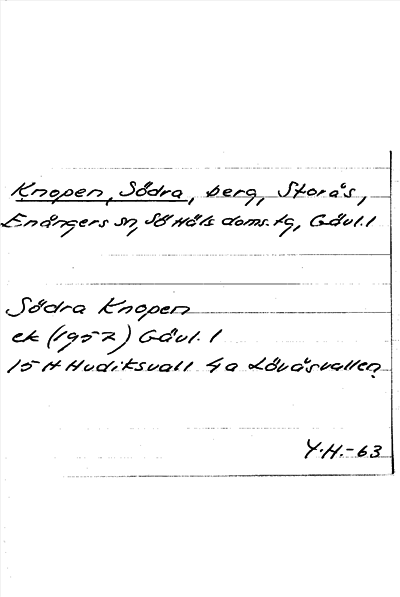 Knopen, Södra, berg, Storås,
Enångers sn, Sö Häls doms. tg, Gävl. l
Södra Knopen
ek (1957) Gävl. l
15 H Hudiksvall 4a Lövåsvallen
Y.H.-63